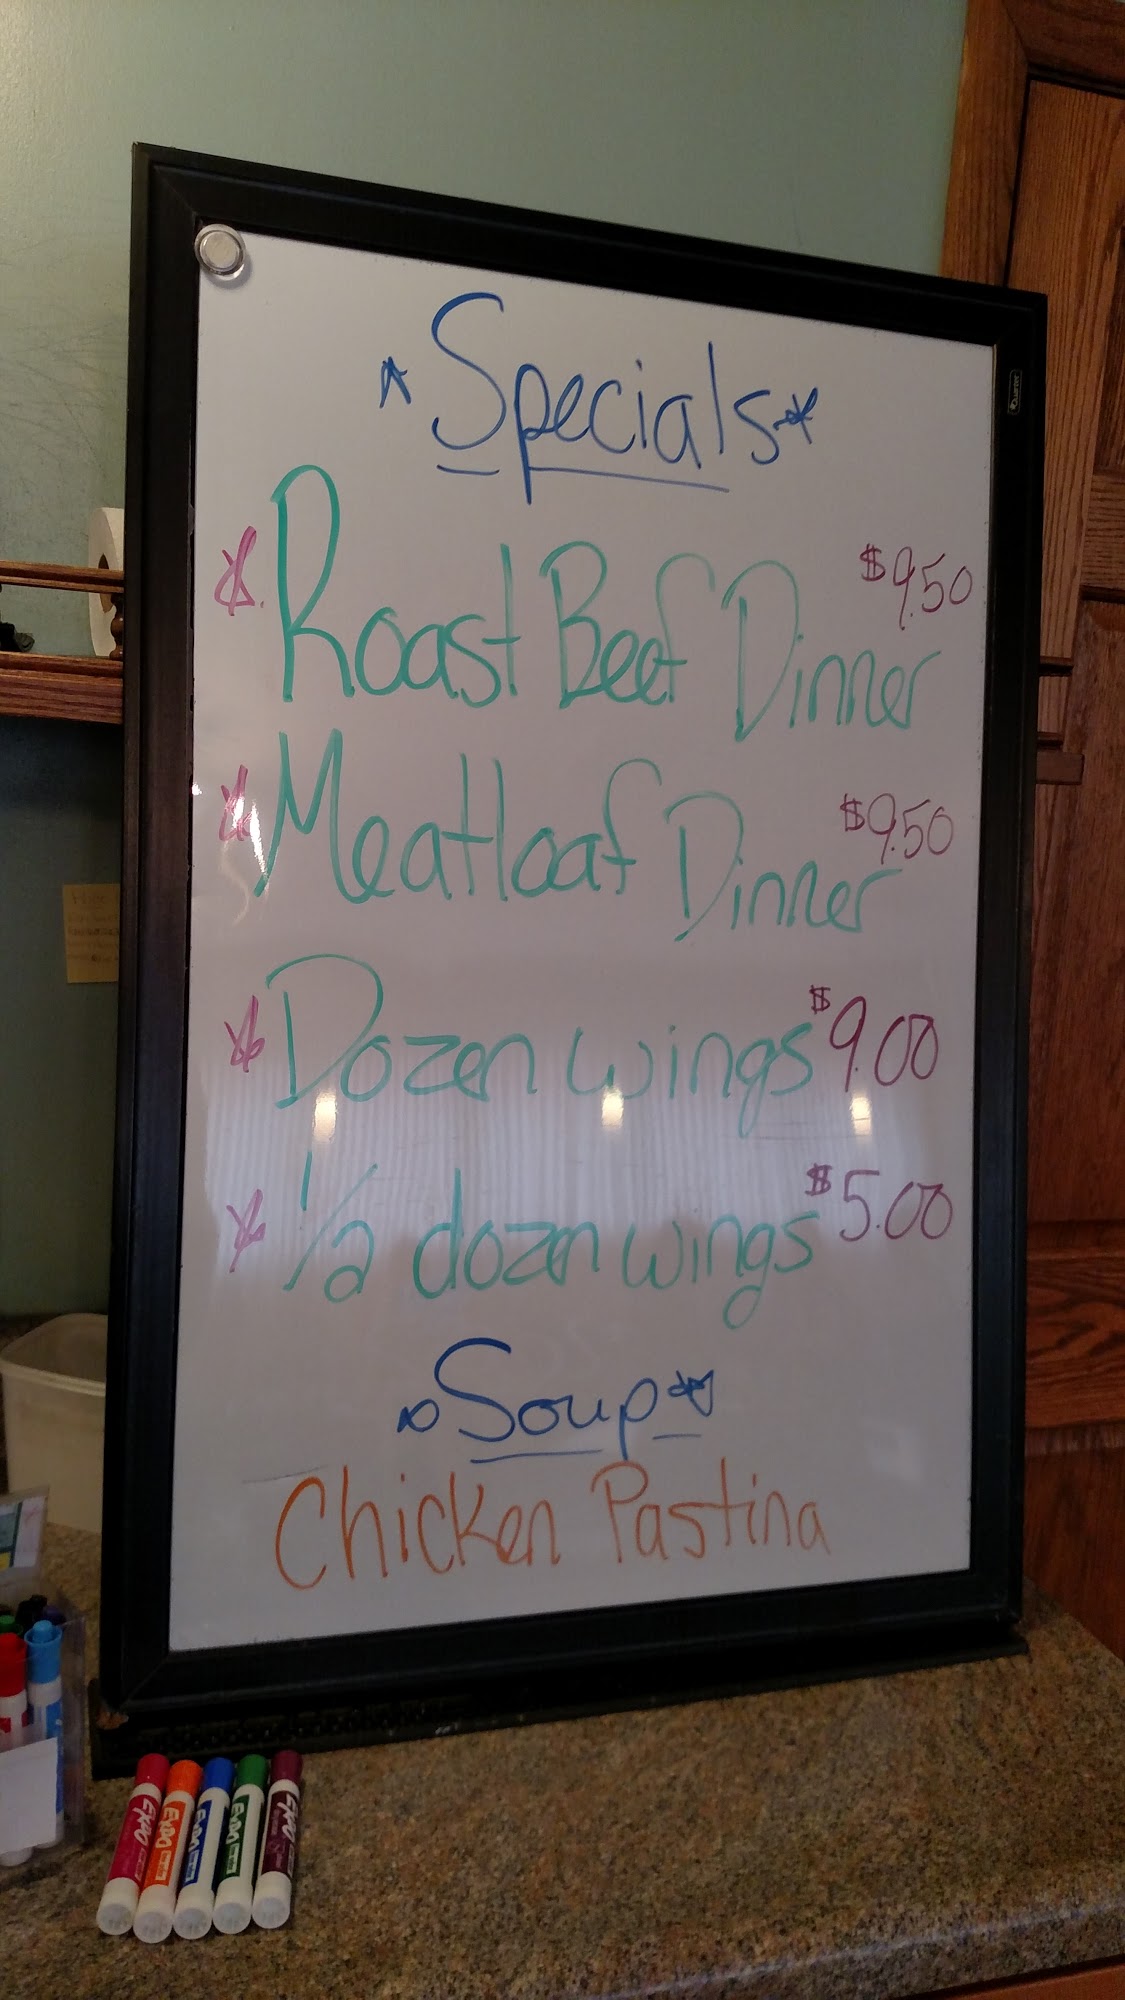 Specials
Roast Beef Dinner $9.50
Meatloaf Dinner $9.50
Dozen wings $9.00
1/2 dozen wings $5.00
Soup
Chicken Pastina
Quartet
EXPO
EXPO
EXPO
EXPO
EXPO